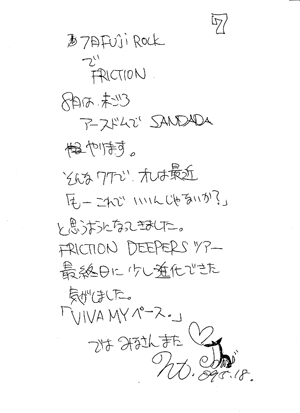 7
7月FUJI ROCK
で
FRICTION
8月は、末ごろ
アースドムで SANDADA
やります。
そんなワケで、オレは最近
「もーこれで いいんじゃないか？」
と思うようになってきました。
FRICTION DEEPERS ツアー
最終日に 少し進化できた
気がしました。
「VIVA MY ペース。」
では みなさん また
09.5.18.